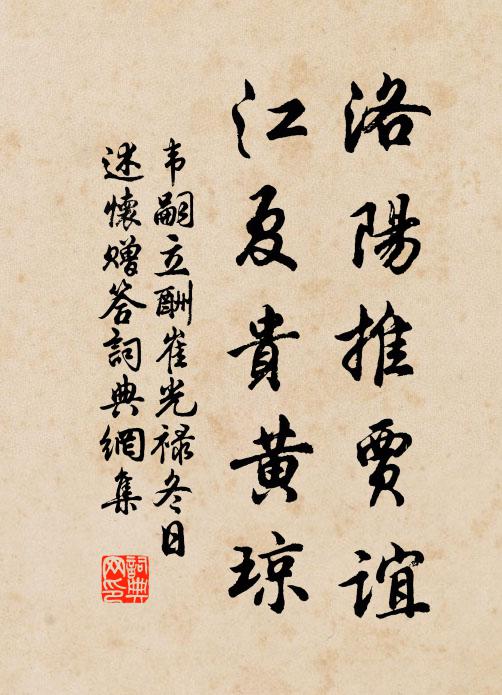 洛陽推賈誼
江夏貴黃琼
韦嗣立酬崔光禄冬日
述懷赠答詞典網集
詞典网印